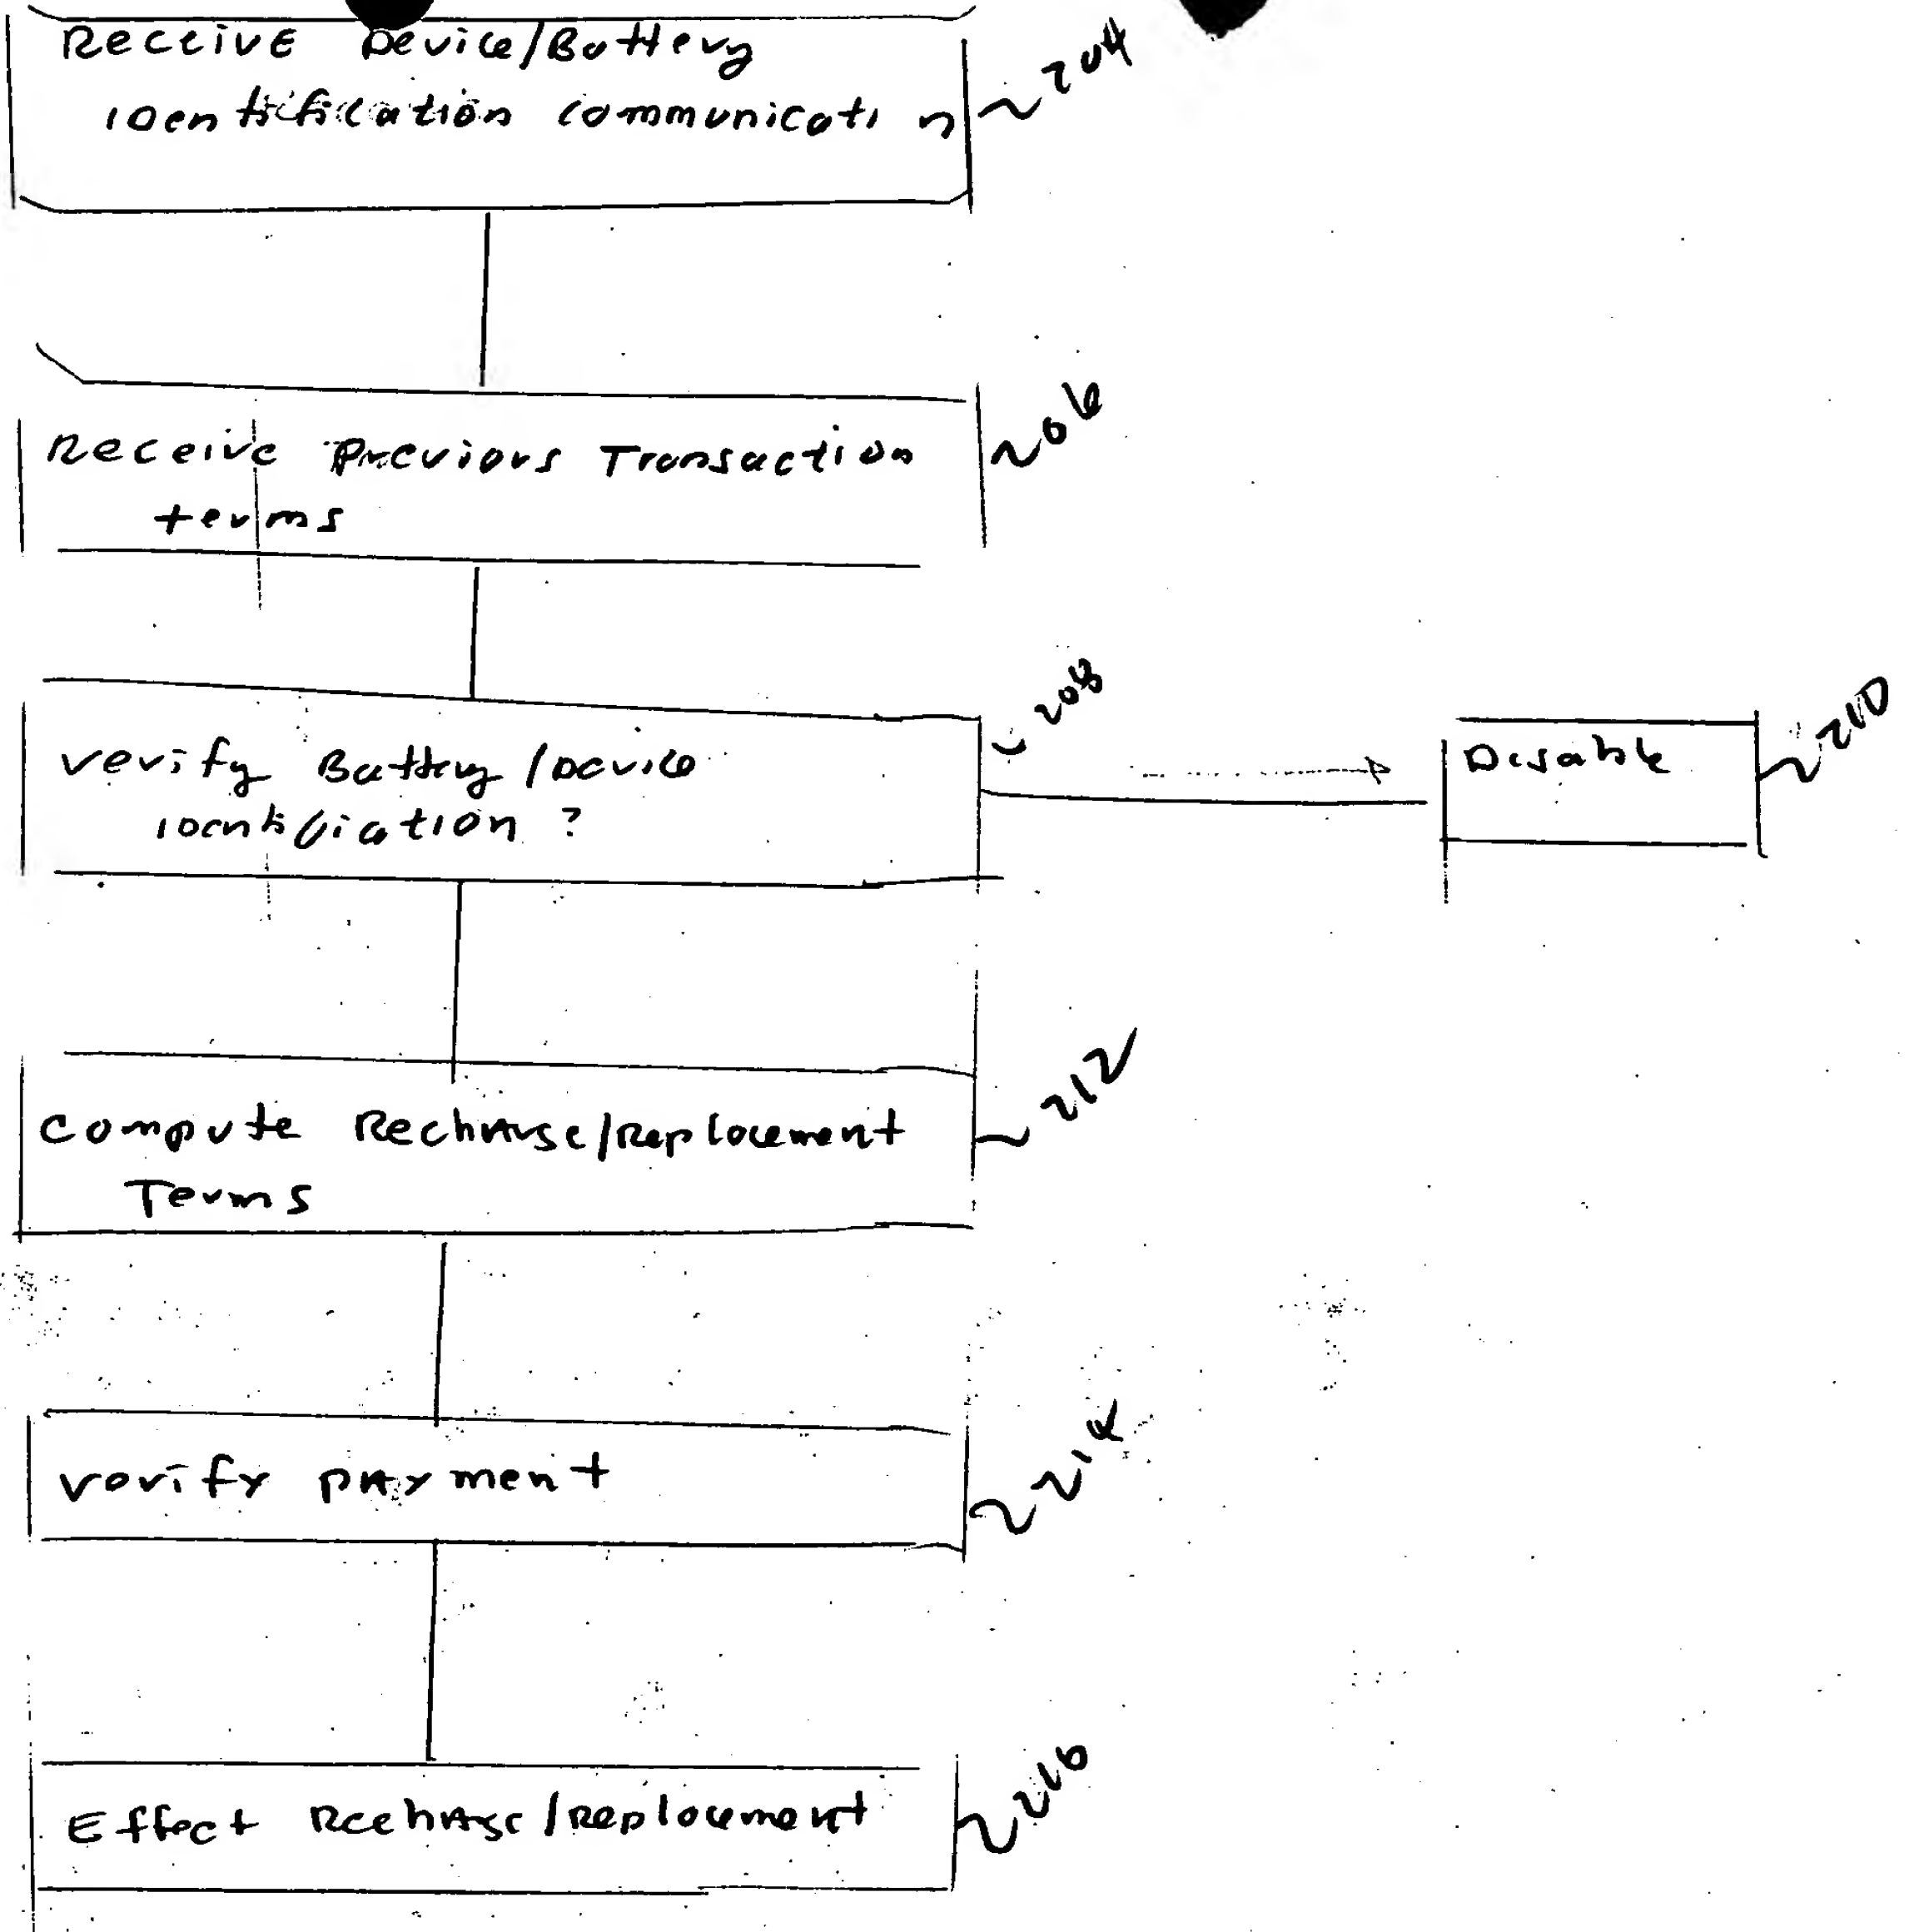 Receive Device/Battery
identification communicati n
204
Receive Previous Transaction
terms
206
verify Battery/Device
identification ?
208
Disable
210
compute Recharge/Replacement
Terms
212
verify payment
214
Effect Recharge/Replacement
216